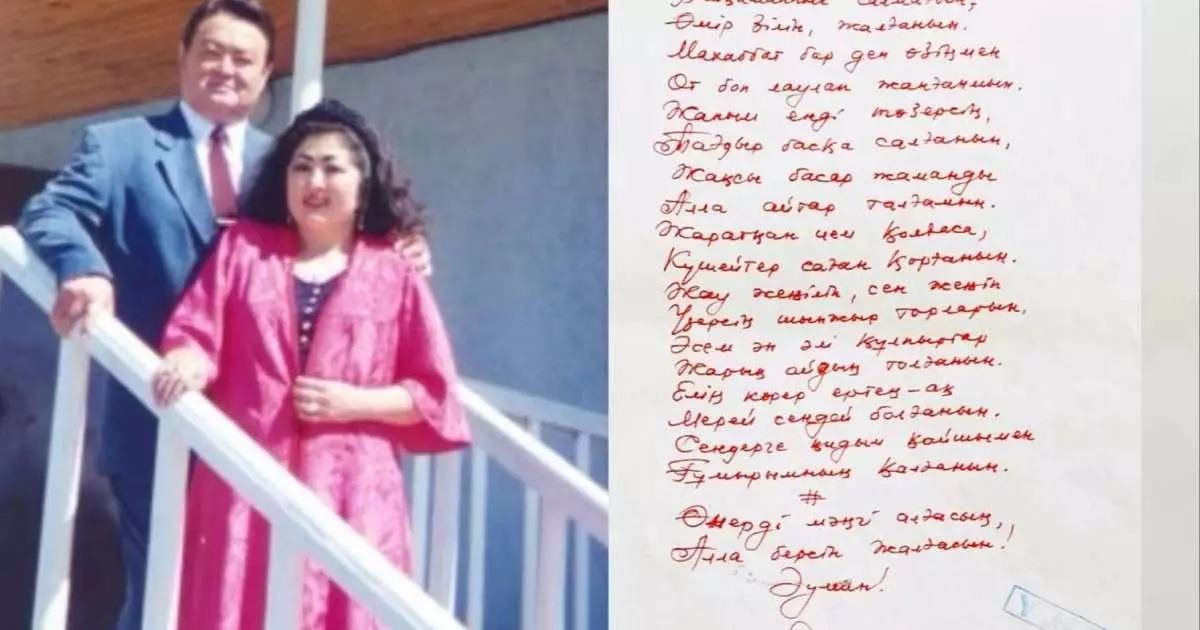 Өмір білін, жалғанын.
Махаббат бар деп өзіңмен
От боп лаулап жанғанмын.
Жаным енді төзерсің,
Тағдыр басқа салғанын,
Жақсы басар жаманды
Алла айтар талғамын.
Жаратқан ием қолдаса,
Күшейтер саған қорғанын.
Жау жеңіліп, сен жеңіп
Үзерсің шынжыр торларын,
Әсем ән әлі құлпыртар
Жарық айдың толғанын.
Елің көрер ертең-ақ
Мерей сендей болғанын.
Сендерге қидым қайшымен
Ғұмырымның қалғанын.
#
Өнерді мәңгі
Алла берсін жалғасын!
Әумин!